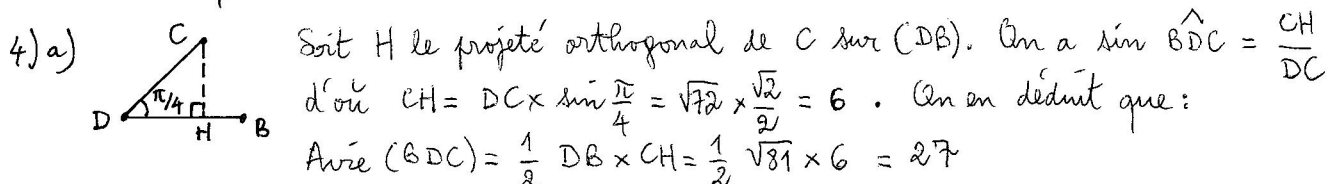 4) a) Soit H le projeté orthogonal de C sur (DB). On a sin \widehat{BDC} = CH/DC
d'où CH = DC × sin π/4 = √72 × √2/2 = 6 . On en déduit que :
Aire (BDC) = 1/2 DB × CH = 1/2 √81 × 6 = 27
C
π/4
D
H
B